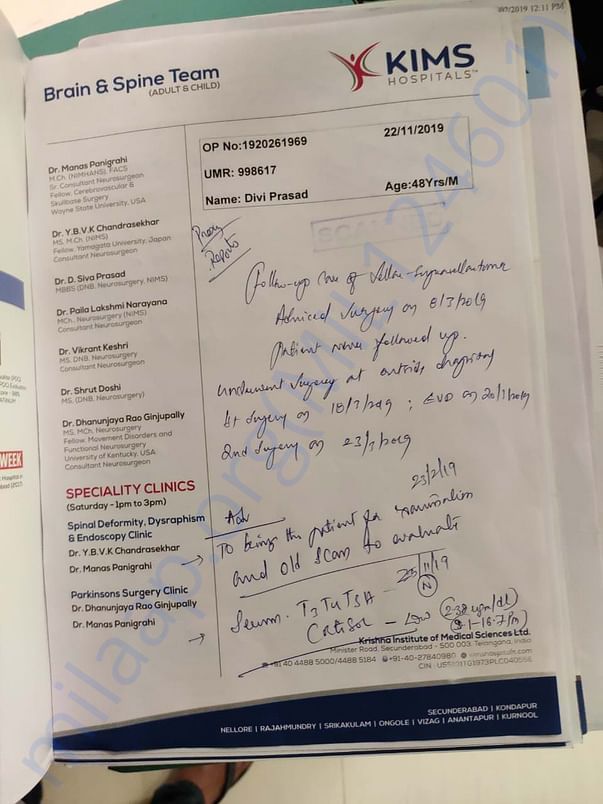 /2019 12:11 PM
Brain & Spine Team
(ADULT & CHILD)
KIMS
HOSPITALS™
Dr. Manas Panigrahi
M.Ch. (NIMHANS), FACS
Sr. Consultant Neurosurgeon
Fellow, Cerebrovascular &
Skullbase Surgery
Wayne State University, USA
Dr. Y.B.V.K Chandrasekhar
MS, M.Ch. (NIMS)
Fellow, Yamagata University, Japan
Consultant Neurosurgeon
Dr. D. Siva Prasad
MBBS (DNB, Neurosurgery, NIMS)
Dr. Paila Lakshmi Narayana
MCh., Neurosurgery (NIMS)
Consultant Neurosurgeon
Dr. Vikrant Keshri
MS, DNB, Neurosurgery
Consultant Neurosurgeon
Dr. Shrut Doshi
MS, (DNB, Neurosurgery)
Dr. Dhanunjaya Rao Ginjupally
MS, MCh, Neurosurgery
Fellow, Movement Disorders and
Functional Neurosurgery
University of Kentucky, USA
Consultant Neurosurgeon
SPECIALITY CLINICS
(Saturday - 1pm to 3pm)
Spinal Deformity, Dysraphism
& Endoscopy Clinic
Dr. Y.B.V.K Chandrasekhar
Dr. Manas Panigrahi
Parkinsons Surgery Clinic
Dr. Dhanunjaya Rao Ginjupally
Dr. Manas Panigrahi
OP No:1920261969
22/11/2019
UMR: 998617
Name: Divi Prasad
Age:48Yrs/M
Proxy
Reports
Follow-up case of Sellar-Suprasellar tumor
Adviced Surgery on 8/3/2019
Patient never followed up.
underwent surgery at outside
1st surgery on 18/3/2019 ; EVD on
2nd surgery on 23/3/2019
23/2/19
Adv
To being the patient for examination
and old scan to evaluate
Serum. T3 T4 TSH - 11/19
N
Cortisol - Low
Krishna Institute of Medical Sciences Ltd.
Minister Road, Secunderabad - 500 003. Telangana, India
+91 40 4488 5000/4488 5184 +91-40-27840980 kimshospitals.com
CIN : U55101TG1973PLC040558
SECUNDERABAD | KONDAPUR
NELLORE | RAJAHMUNDRY | SRIKAKULAM | ONGOLE | VIZAG | ANANTAPUR | KURNOOL
WEEK